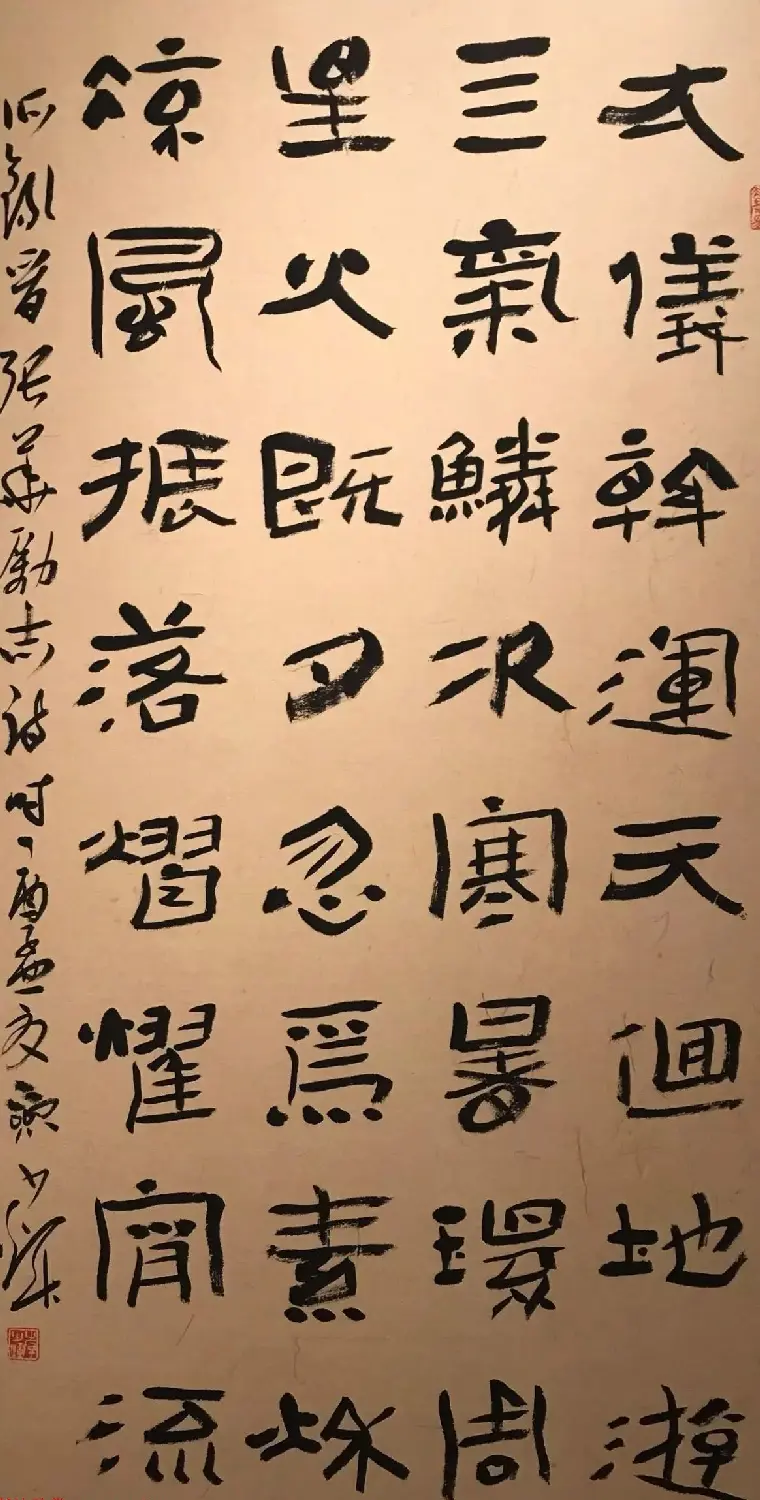 大儀斡運天迴地遊
三氣鱗次寒暑環周
星火既夕忽焉素秋
涼風振落熠燿宵流
錄晉張華勵志詩時丁酉孟夏